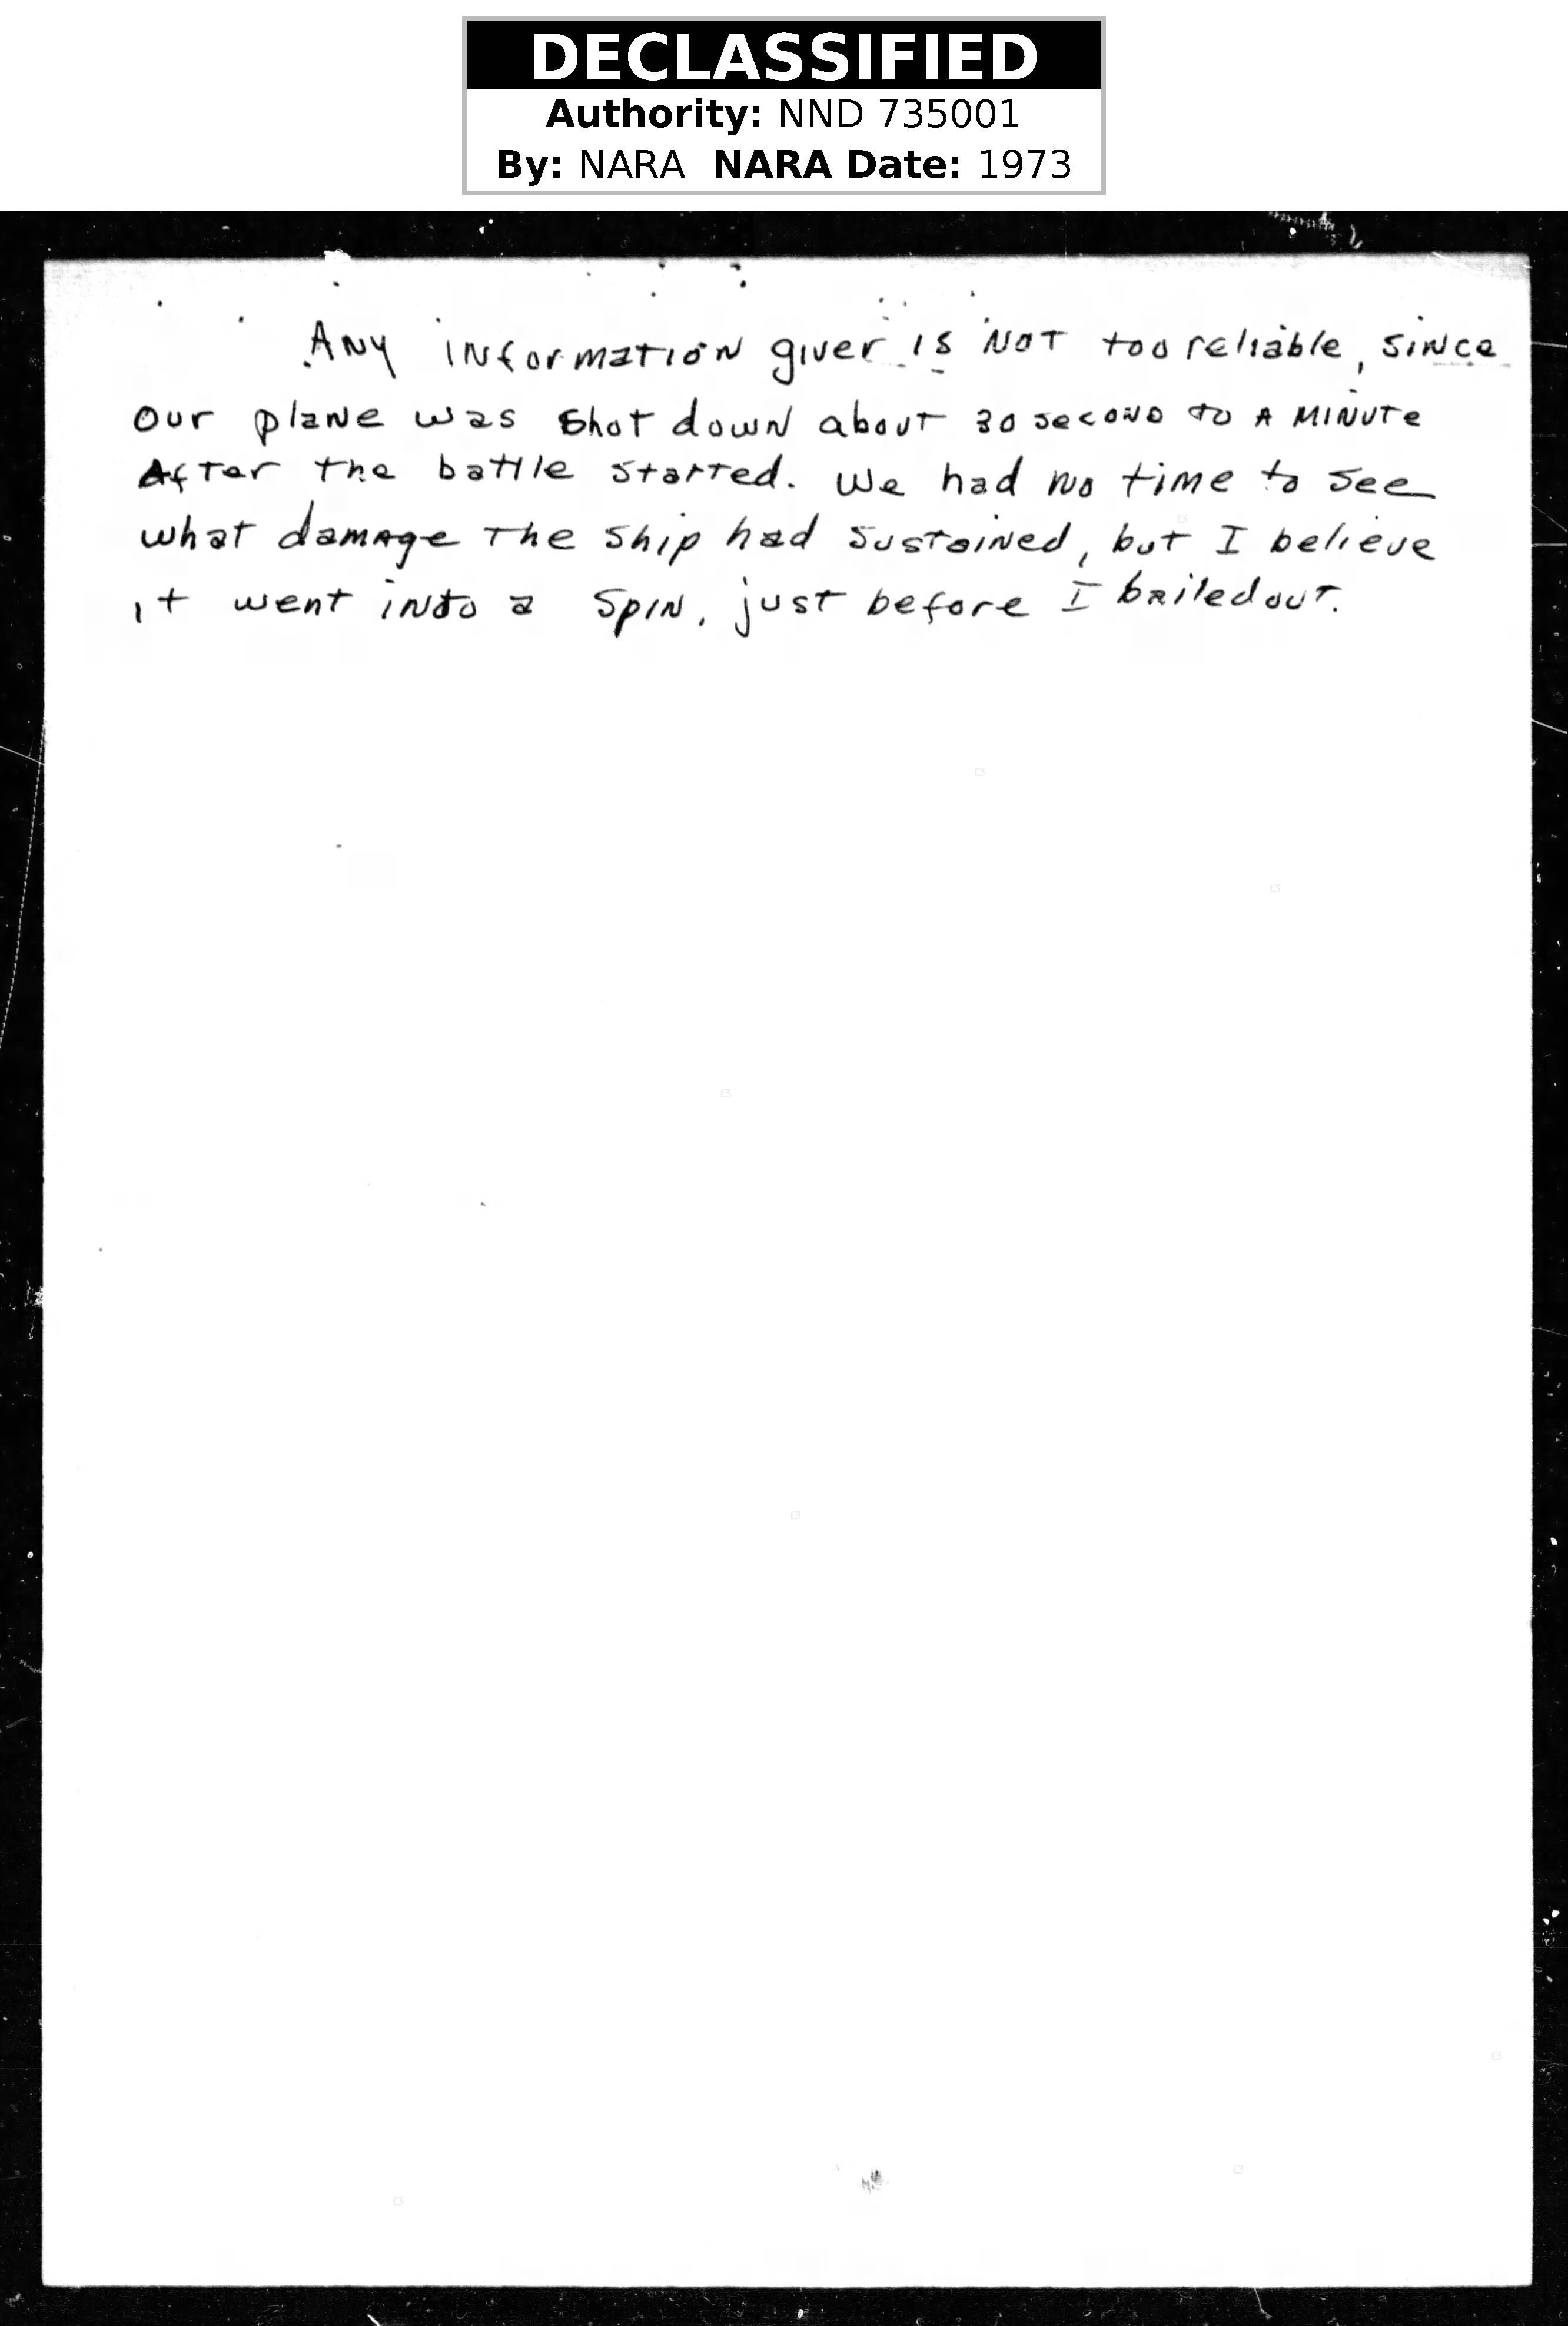 DECLASSIFIED
Authority: NND 735001
By: NARA NARA Date: 1973
Any information giver is Not too reliable, since
Our plane was shot down about 30 second to A Minute
After the battle started. We had no time to see
what damage the ship had sustained, but I believe
it went into a spin, just before I bailed out.